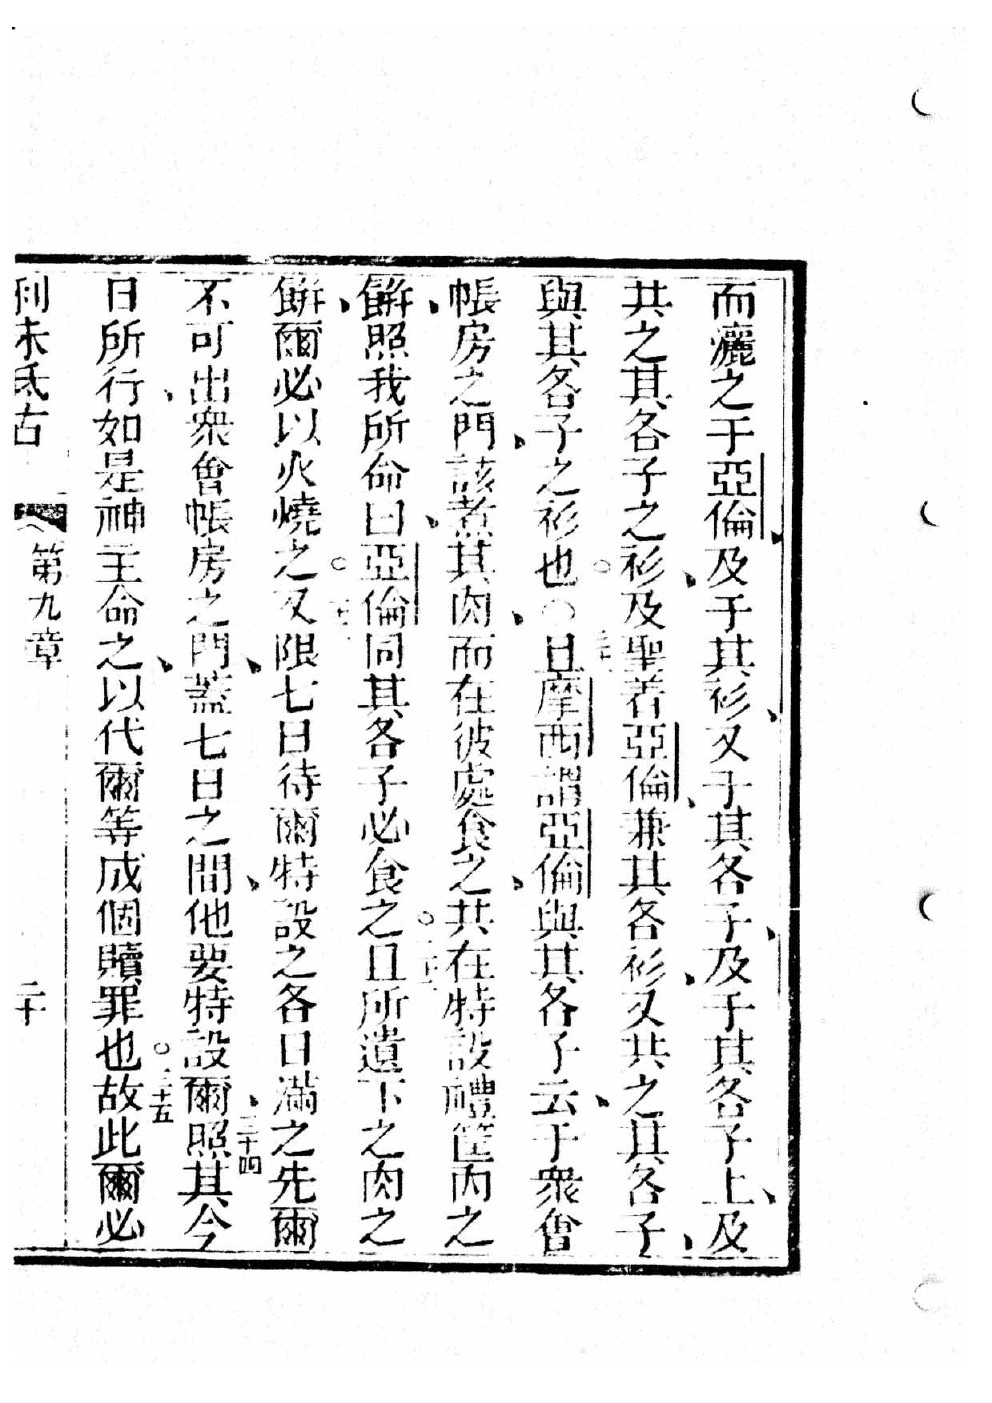 而灑之于亞倫、及于其衫、又于其各子、及于其各子上、及
共之其各子之衫、及聖着亞倫、兼其各衫、又共之其各子、
與其各子之衫也。○且摩西謂亞倫與其各子云、于衆會
帳房之門、該煮其肉、而在彼處食之、共在特設禮筐內之
餅、照我所命曰、亞倫同其各子必食之。且所遺下之肉之
餅、爾必以火燒之。又限七日待爾特設之各日滿之先、爾
不可出衆會帳房之門、蓋七日之間、他要特設爾、三十四照其今
日所行、如是神主命之、以代爾等成個贖罪也。三十五故此爾必
利未氏古 第九章 二十